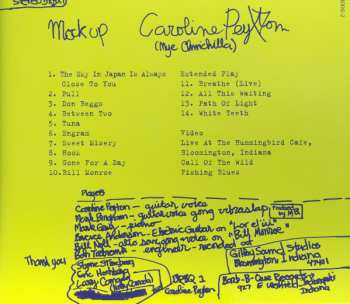 Mock up Caroline Peyton
(Nye Chinchilla)
1. The Sky In Japan Is Always
Close To You
2. Pull
3. Don Beggs
4. Between Two
5. Tuna
6. Engram
7. Sweet Misery
8. Hook
9. Gone For A Day
10.Bill Monroe
Extended Play
11. Breathe (Live)
12. All This Waiting
13. Path Of Light
14. White Teeth
Video
Live At The Hummingbird Cafe,
Bloomington, Indiana
Call Of The Wild
Fishing Blues
Players
Caroline Peyton - guitar voice
Mark Bingham - guitar voice gong vibraslap
Produced by MB
Mark Gray - piano
Bruce Anderson - Electric Guitar on
Bill Noll - alto sax gong voice on "Bill Monroe"
Bob - engineer - recorded at
Gilfoy Sound Studios
Bloomington Indiana
47401
Thank you
Eric
Larry
BRBQ 1
Caroline Peyton
Bar-B-Q Records
Indianapolis
Indiana